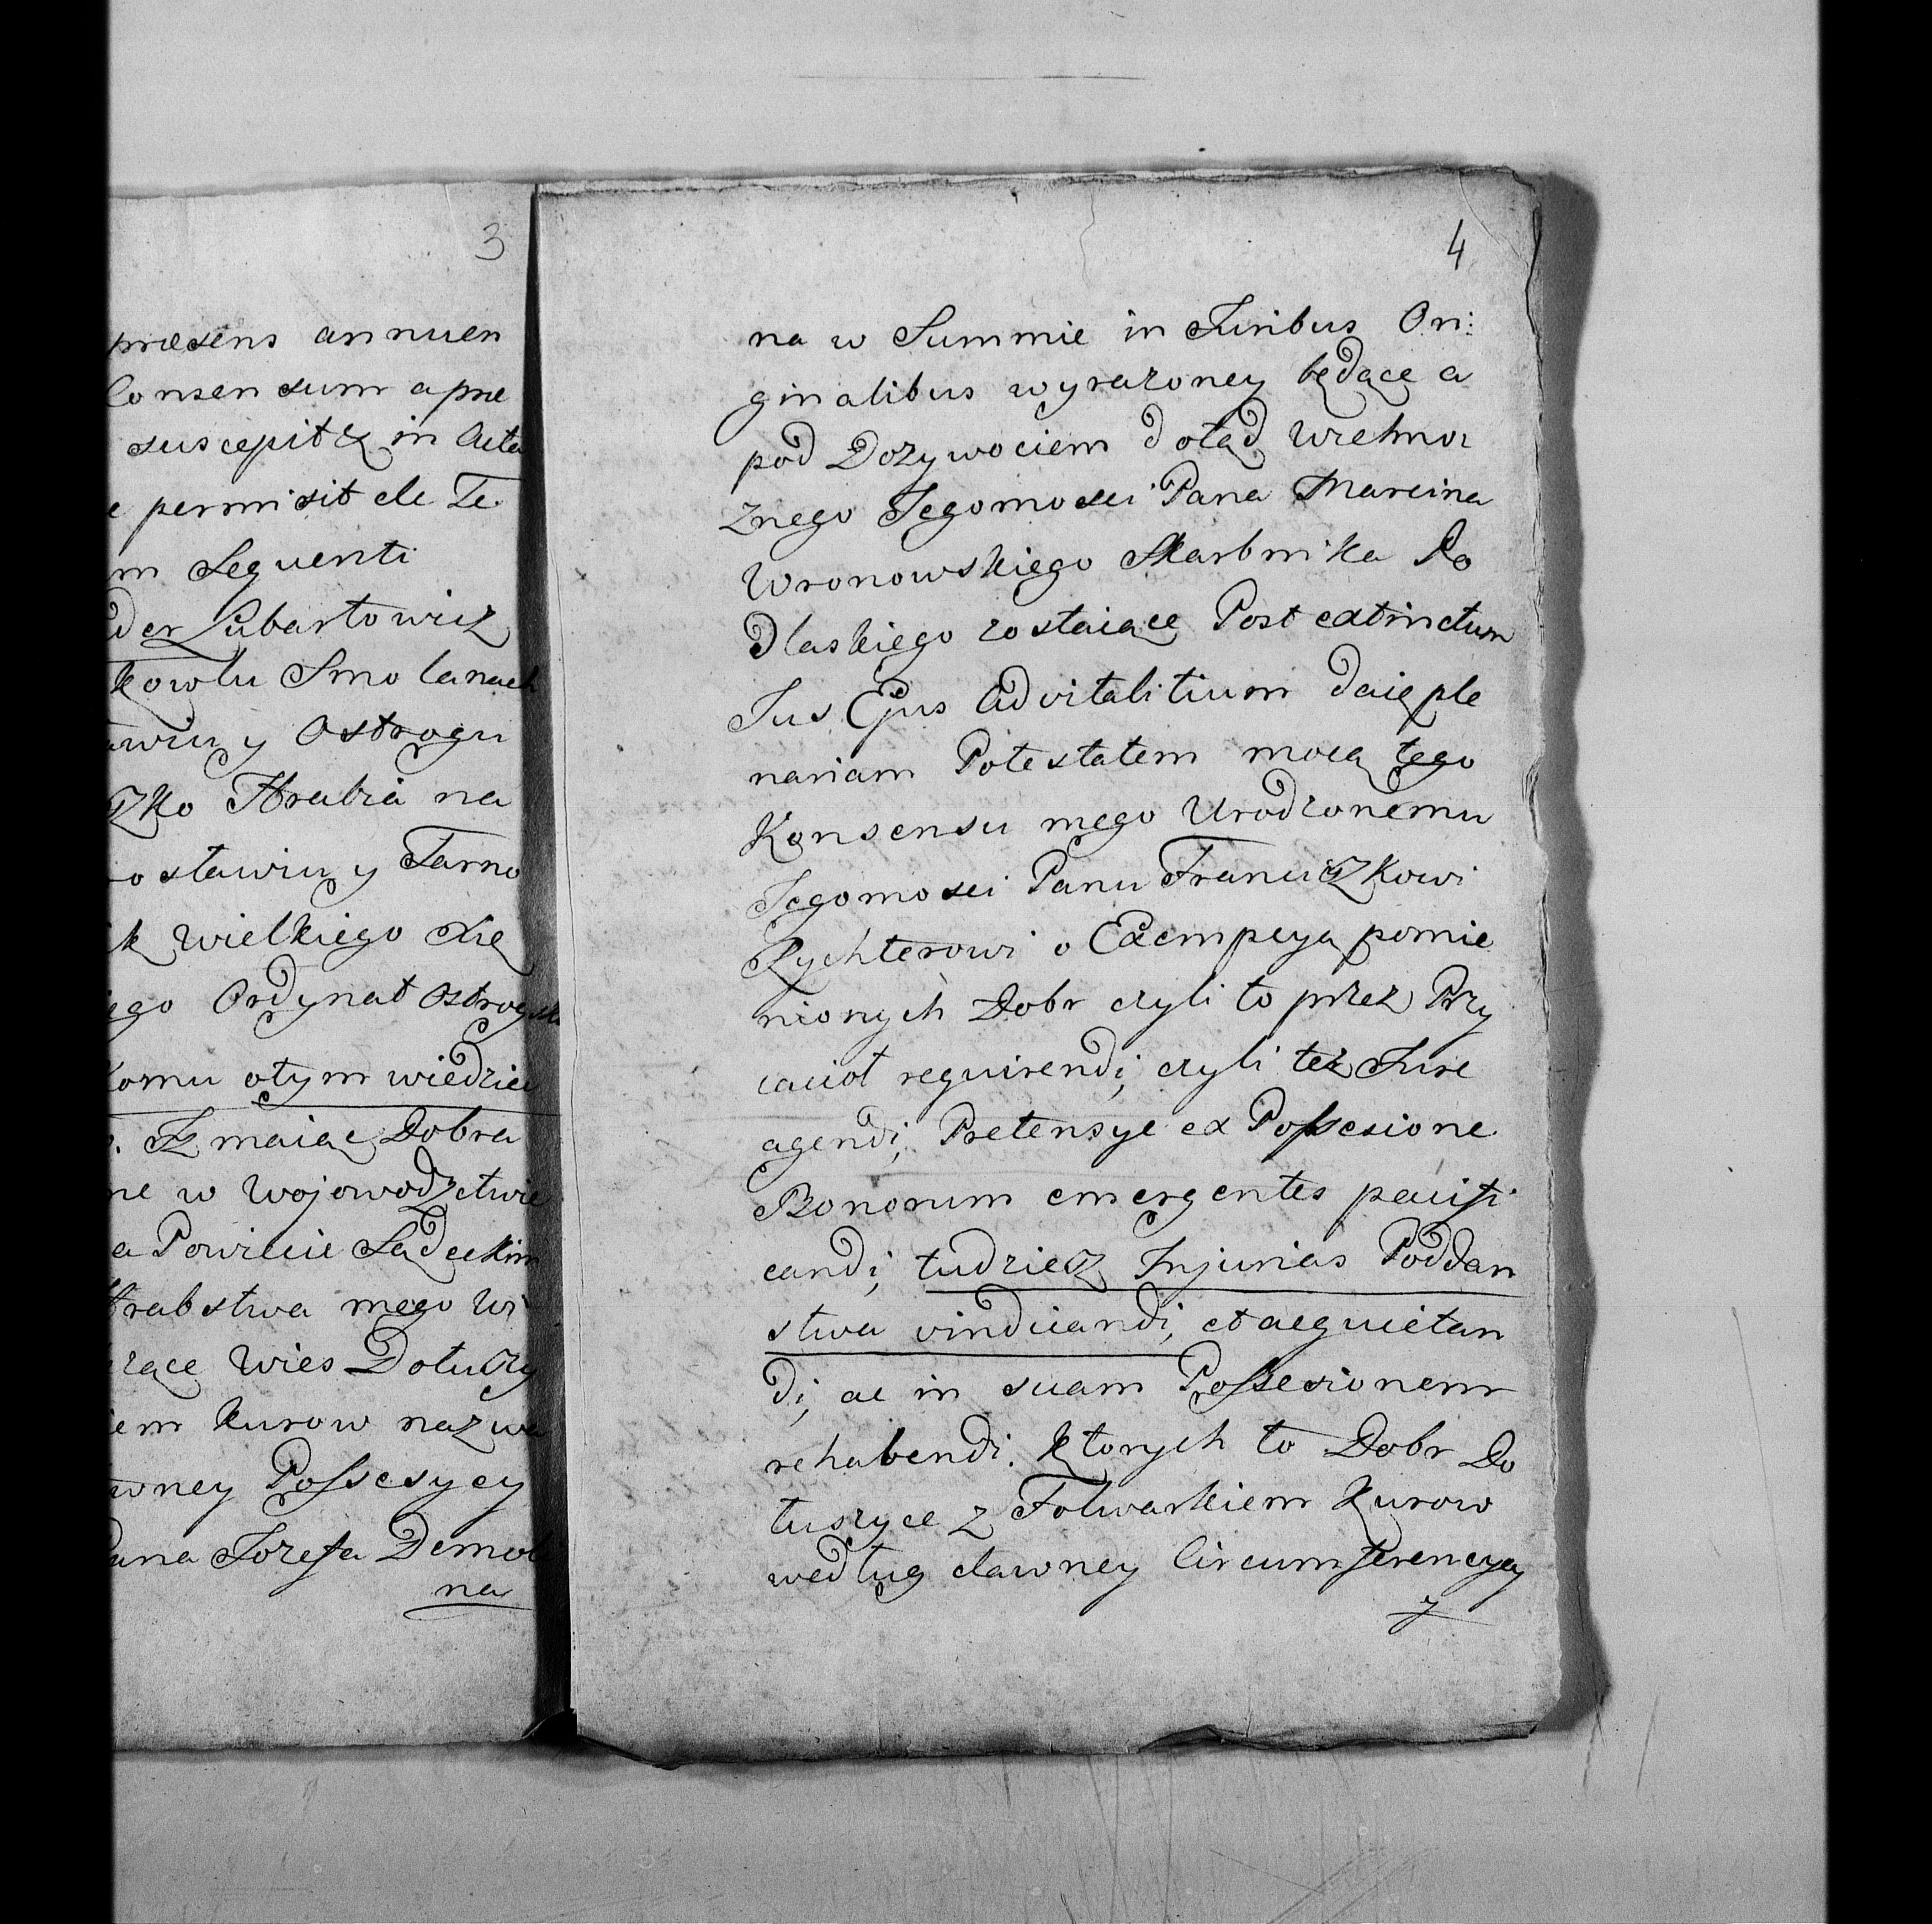 3
præsens annuen
Consensum a præ
suscepit & in Acta
e permisit de Te
m Sequenti
der Lubartowicz
Kowlu Smolanach
awiu y Ostrogu
szko Hrabia na
ostawiu y Tarno
k Wielkiego Xię
ego Ordynat Ostrogski
komu otym wiedziec
Iz maiąc Dobra
ne w Wojewodztwie
a Powiecie Sądeckim
Hrabstwa mego Wi
zące Wies Dołuszy
iem Kurow nazwa
wney Possesycy
Pana Jozefa Demol
na
4
na w Summie in Juribus Ori:
ginalibus wyrazoney będące a
pod Dozywociem dotąd Wielmo
znego Jegomosci Pana Marcina
Wronowskiego Skarbnika Po
dlaskiego zostaiące Post extinctum
Jus Ejus Advitalitium daię ple
nariam Potestatem mocą tego
Konsensu mego Urodzonemu
Jegomosci Panu Franciszkowi
Rychterowi o Exempcyą pomie
nionych Dobr czyli to przez Przy
iaciol requirendi; czyli tez Jure
agendi, Pretensye ex Possesione
Bonorum emergentes pacifi
candi; tudziesz Injurias Poddan
stwa vindicandi, et acquietan
di, ac in suam Possesionem
rehabendi. ktorych to Dobr Do
łuszyce z Folwarkiem Kurow
według dawney Circumferencyą
y